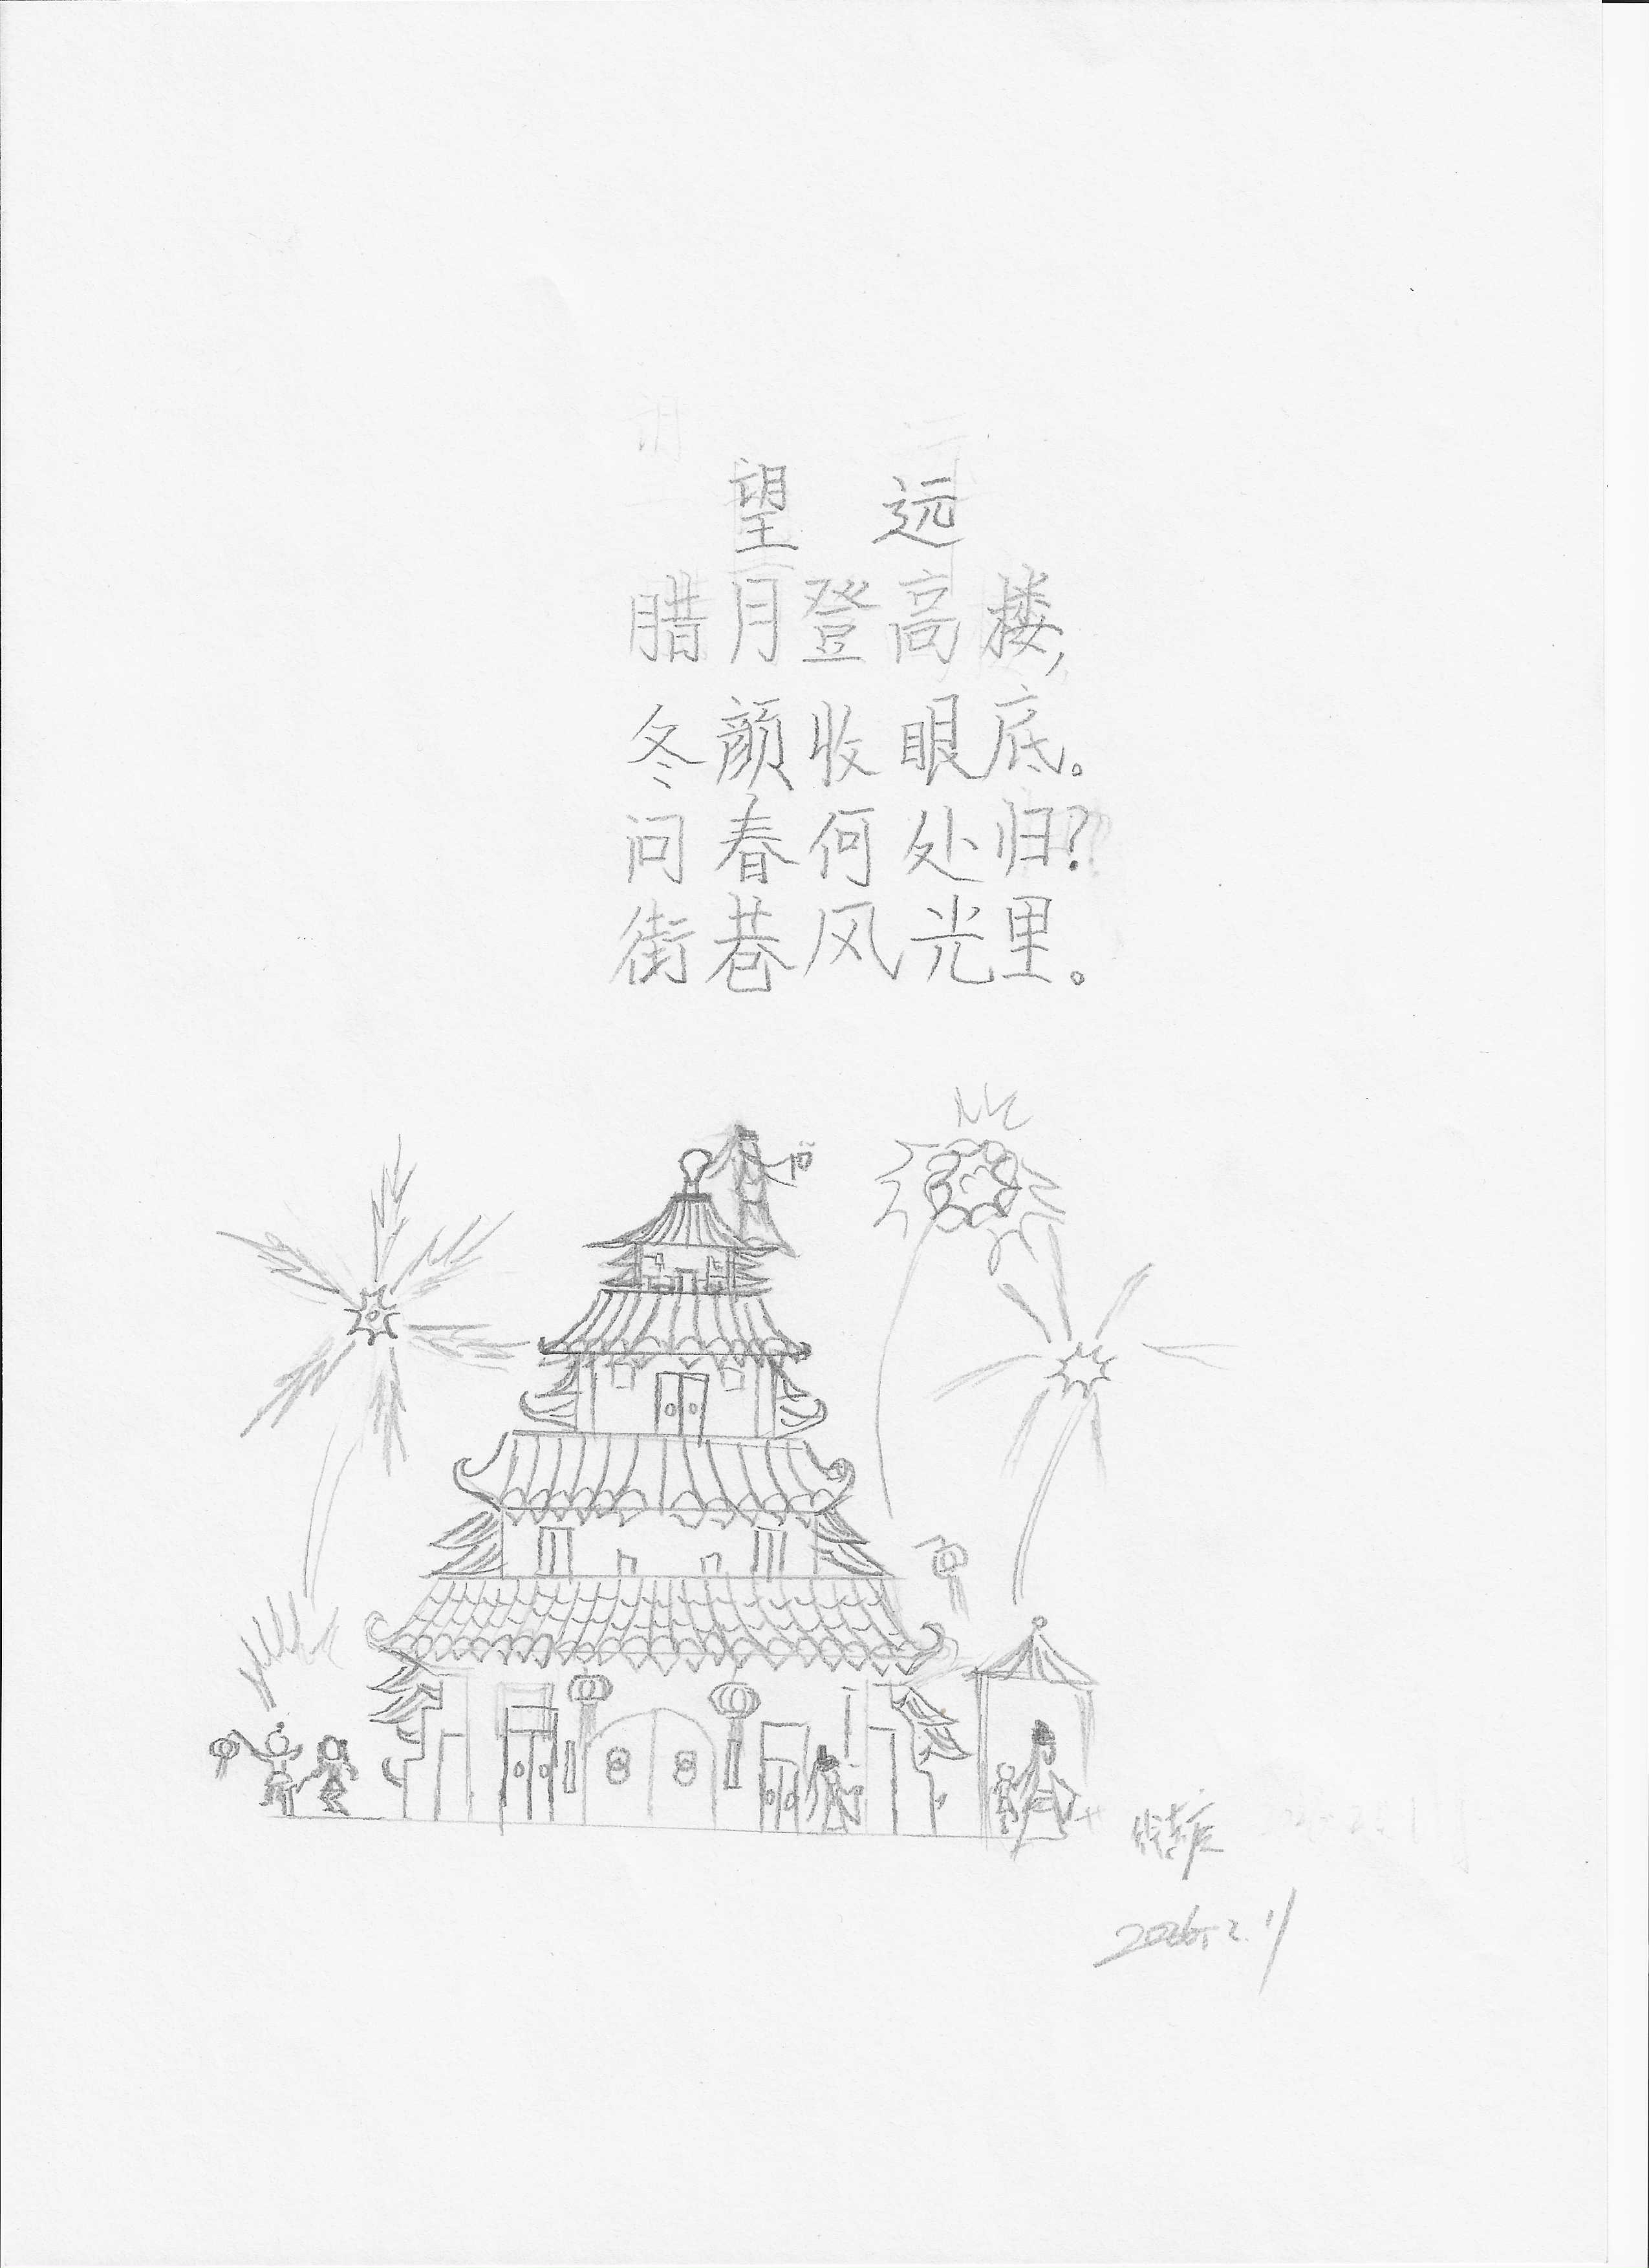 望 远
腊月登高楼,
冬颜收眼底。
问春何处归?
街巷风光里。
2026.2.11